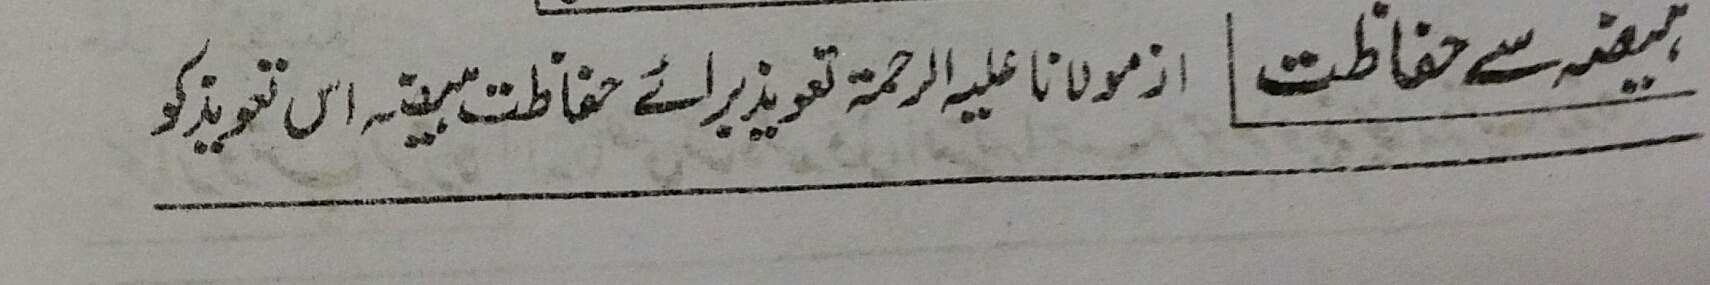 ہیضہ سے حفاظت از مولانا علیہ الرحمۃ تعویذ برائے حفاظت ہیضہ اس تعویذ کو